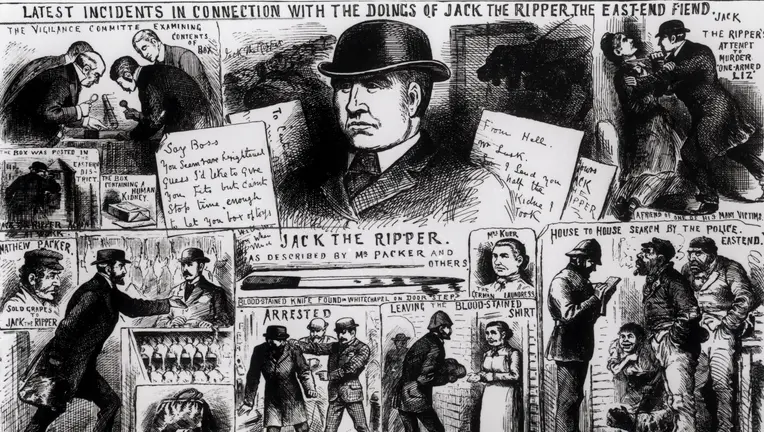 LATEST INCIDENTS IN CONNECTION WITH THE DOINGS OF JACK THE RIPPER, THE EAST-END FIEND.
THE VIGILANCE COMMITTE EXAMINING
CONTENTS
OF
BOX
Jack the Ripper
"JACK
THE RIPPER'S
ATTEMPT
TO
MURDER
"ONE-ARMED
LIZ"
A FRIEND OF ONE OF HIS MANY VICTIMS.
THE BOX WAS POSTED IN
THE
EASTERN
DIS-
TRICT.
THE BOX
CONTAINING A
HUMAN
KIDNEY.
JACK THE RIPPER
Say Boss
You seem rare frightened
Guess I'd like to give
you fits but can't
Stop time enough
to let you box of toys
From Hell.
Mr Lusk.
I send you
half the
Kidne I
took
JACK
RIPPER
JACK THE RIPPER.
AS DESCRIBED BY MR PACKER AND
OTHERS
BLOOD-STAINED KNIFE FOUND IN WHITECHAPEL ON DOOR STEPS
MATHEW PACKER.
SOLD GRAPES
TO
JACK THE RIPPER
ARRESTED
LEAVING THE BLOOD-STAINED
SHIRT
MRS KUER
THE
GERMAN LAUNDRESS
HOUSE TO HOUSE SEARCH BY THE POLICE.
EASTEND.